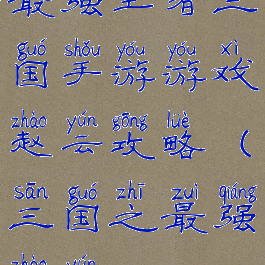 最强王者三
guó shǒu yóu yóu xì
国手游游戏
zhào yún gōng lüè
赵云攻略（
sān guó zhī zuì qiáng
三国之最强
zhào yún